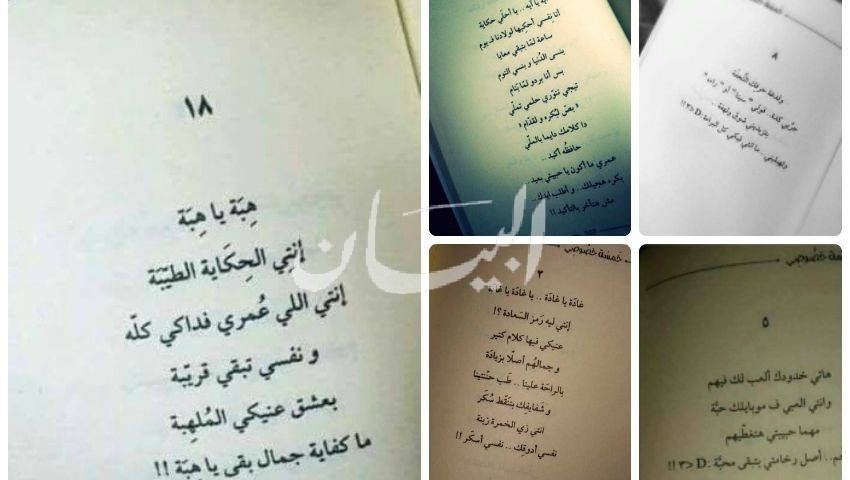 ١٨
هِبَة يا هِبَة
إنتِي الحِكَاية الطيِّبَة
إنتي اللي عُمري فداكي كلّه
و نفسي تبقي قريّبة
بعشق عنيكي المُلهِبة
ما كفاية جمال بقى يا هِبَة !!
يا أحلى حكاية
أنا نِفسي أحكيها لولادنا ف يوم
ساعة لمّا بتبقي معايا
بنسى الدُنيا و بنسى النوم
بس أنا بردو لمّا بَنام
تيجي تنوّري حلمي تملّي
« بصّي لبُكره ولقدّام »
دا كلامك دايما بالمللّي
حافظُه أكيد ..
عمري ما أكون يا حبيبتي بعيد ..
بكره هجيلك .. و أطلب ايدك ..
مش هتأخر بالتأكيد !!
٨
جرّبي كدة .. قولي " سينا " أو " راء "
خمسة خصوصي
٣
غادَة يا غادَة .. يا غادَة يا غادَة
إنتي ليه رَمز السَعادة ؟!
عنيكي فيها كلام كتير
و جمالهُم أصلًا بزيادَة
بالراحَة علينا .. طَب حنّنينا
و شَفايفِك بتنَقّط سُكَر
انتي زي الخمرة زينة
نفسي أدوقِك .. نفسي أسكَر !!
خصوصي
٥
هاتي خدودك ألعب لك فيهم
وانتي العبي ف موبايلك حبَّة
مهما حبيبتي هتغطّيهم
.. أصل رخامتي بتبقى محبَّة :D <٣ !!
البيان